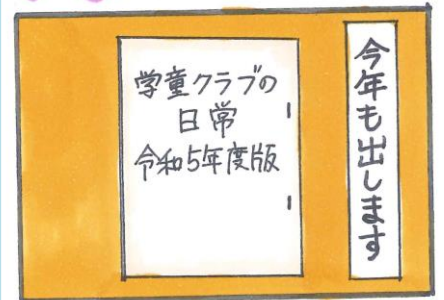 今年も出します
学童クラブの
日常
令和5年度版